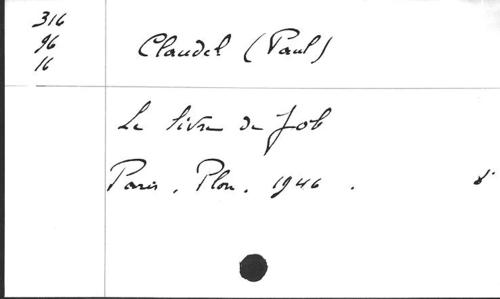 316
96
16
Claudel (Paul)
Le livre de Job
Paris, Plon, 1946.
8°